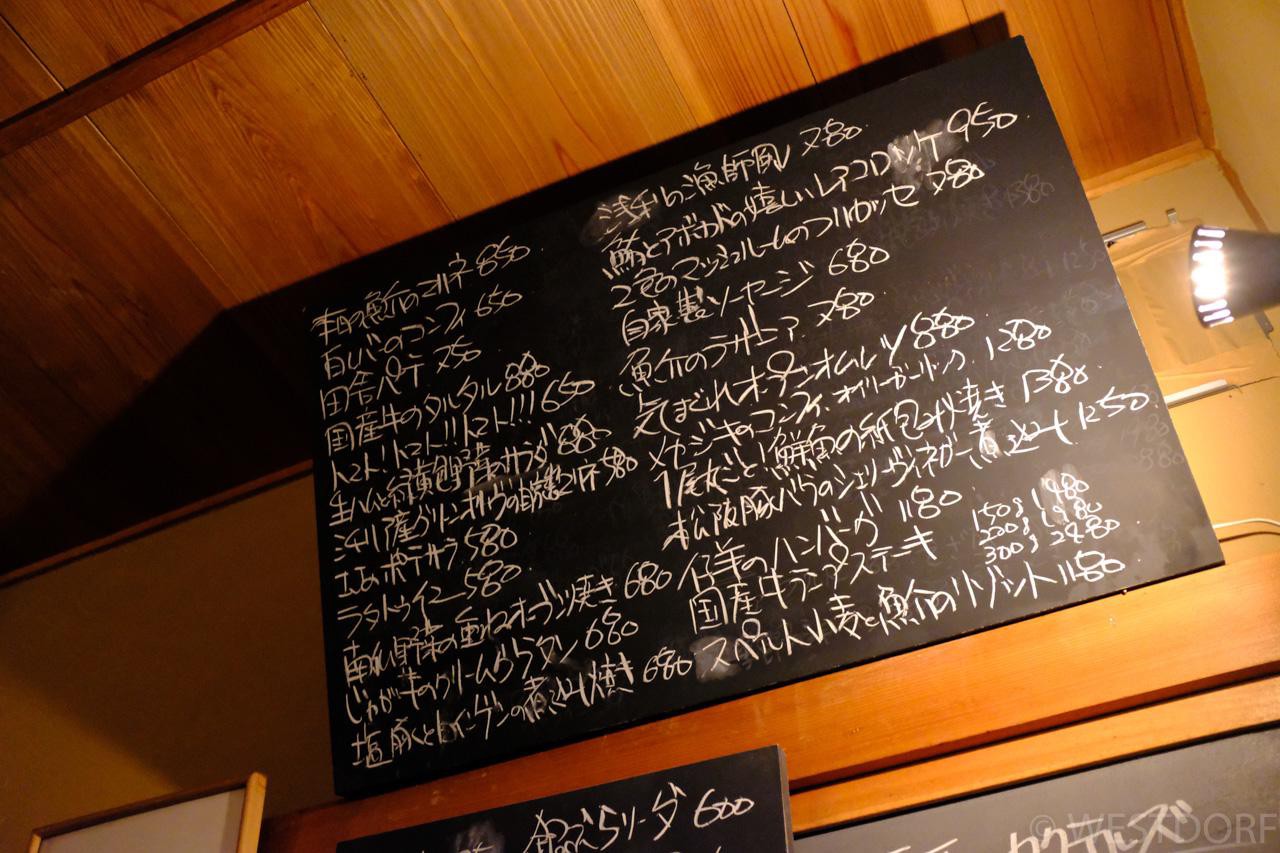 本日の魚介のマリネ 850
白レバーのコンフィ 650
田舎パテ 750
国産牛のタルタル 880
トマト!トマト!!トマト!!! 650
生ハムと のサラダ 880
産グリーンオリーブの 580
ポテサラ 580
ラタトゥイユ 580
南仏野菜の重ねオーブン焼き 680
じゃが芋のクリームグラタン 680
塩豚と白インゲンの煮込み焼き 680
浅利の漁師風 780
鮪とアボカドの嬉しいレアコロッケ 950
2色のマッシュルームのフリカッセ 780
自家製ソーセージ 680
魚介のブイヤベース 780
気まぐれオープンオムレツ 880
メカジキのコンフィ、オイリーガーリック 1280
1尾丸ごと!鮮魚の紙包み焼き 1380
松阪豚バラのシェリーヴィネガー煮込み 1250
仔羊のハンバーグ 1180
国産牛 ステーキ 150g 1480
200g 1980
300g 2480
スペルト小麦と魚介のリゾット 1180
600
カクテルズ
© WESTDORF